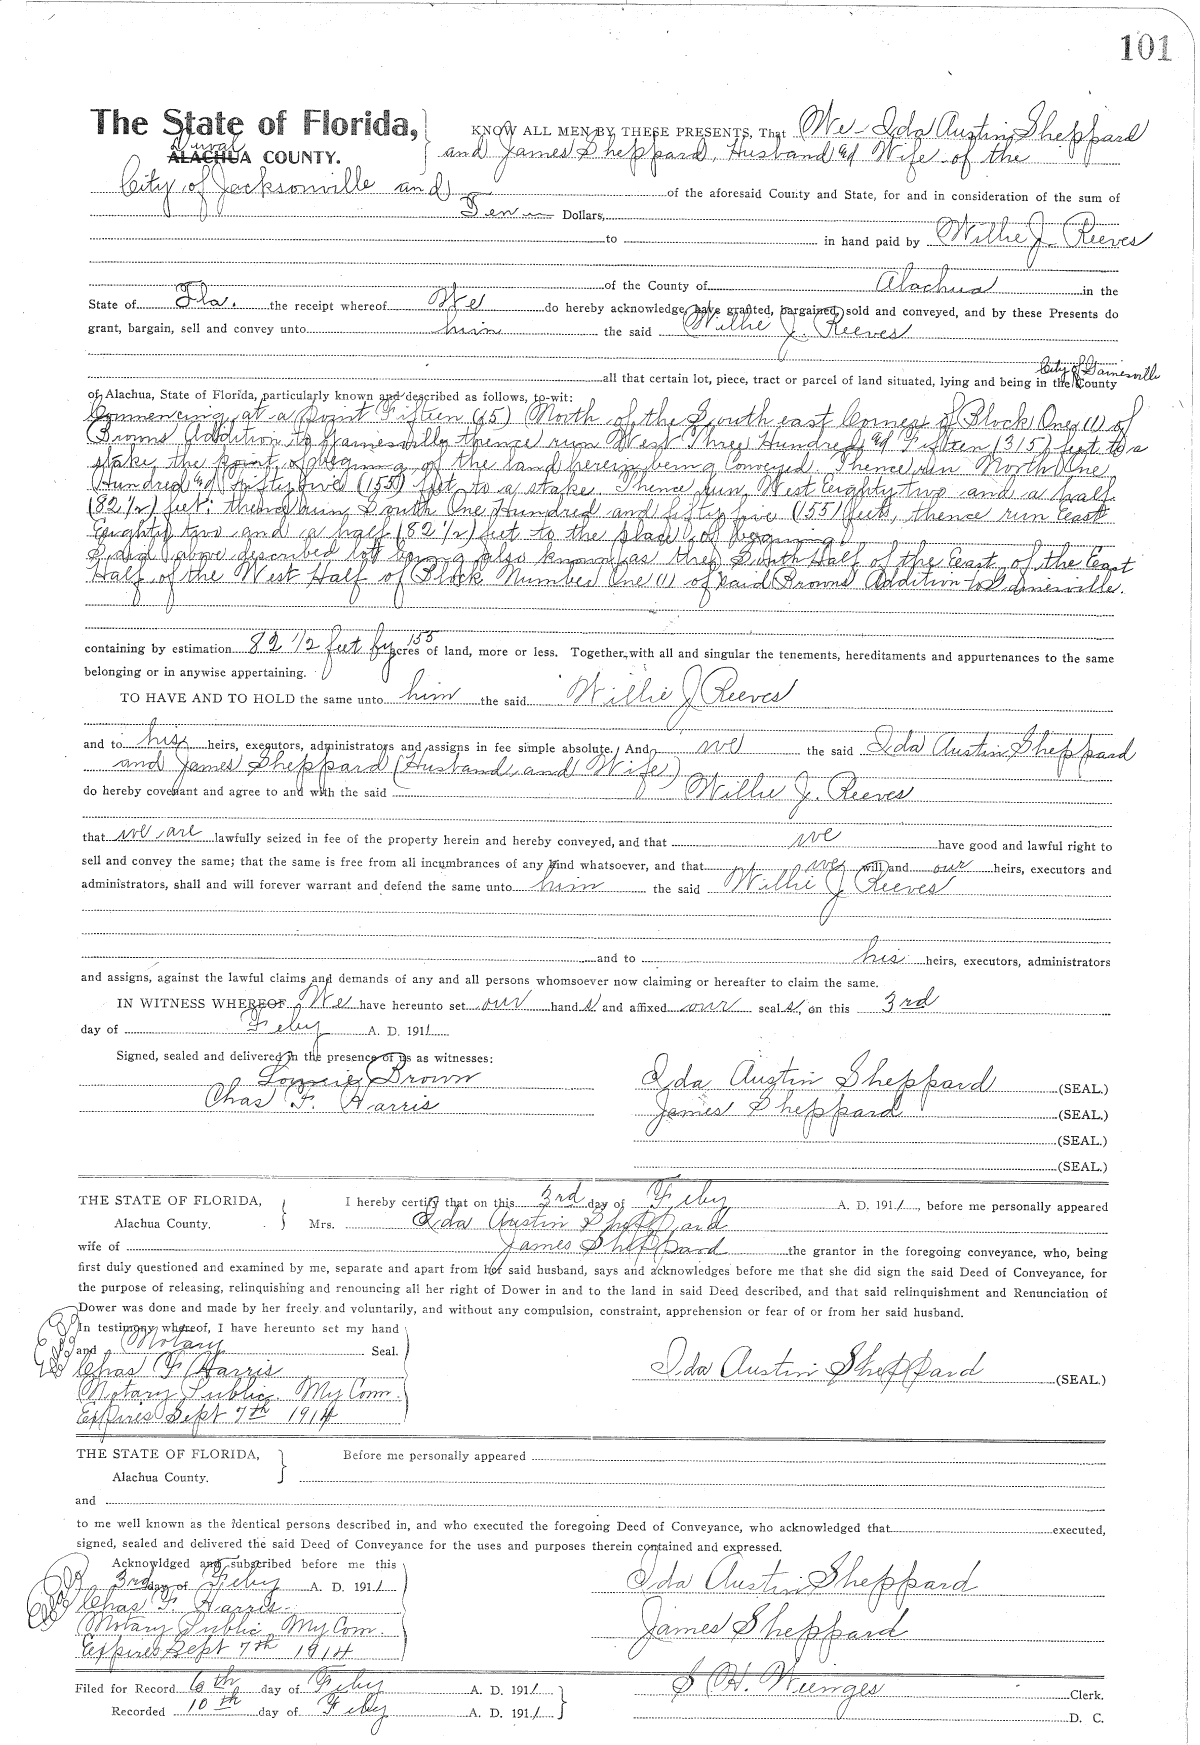 101
The State of Florida,
Duval
ALACHUA COUNTY.
KNOW ALL MEN BY THESE PRESENTS, That We - Ida Austin Sheppard
and James Sheppard, Husband &d Wife of the
City of Jacksonville and of the aforesaid County and State, for and in consideration of the sum of
Ten Dollars,
to in hand paid by Willie J. Reeves
of the County of Alachua in the
State of Fla. the receipt whereof We do hereby acknowledge, have granted, bargained, sold and conveyed, and by these Presents do
grant, bargain, sell and convey unto him the said Willie J. Reeves
City of Gainesville
all that certain lot, piece, tract or parcel of land situated, lying and being in the County
of Alachua, State of Florida, particularly known and described as follows, to-wit:
Commencing at a point Fifteen (15) North of the South east Corner of Block One (1) of
Browns Addition to Gainesville thence run West Three Hundred &d Fifteen (315) feet to a
stake, the point of beginning of the land herein being Conveyed. Thence run North One
Hundred &d Fifty five (155) feet to a stake. Thence run West Eeighty two and a half
(82 1/2) feet: thence run South One Hundred and fifty five (155) feet, thence run East
Eeighty two and a half (82 1/2) feet to the place of beginning.
Said above described lot being also known as the South Half of the East of the East
Half of the West Half of Block Number One (1) of said Browns Addition to Gainesville.
containing by estimation 82 1/2 feet by 155 acres of land, more or less. Together with all and singular the tenements, hereditaments and appurtenances to the same
belonging or in anywise appertaining.
TO HAVE AND TO HOLD the same unto him the said Willie J Reeves
and to his heirs, executors, administrators and assigns in fee simple absolute. And we the said Ida Austin Sheppard
and James Sheppard (Husband and Wife)
do hereby covenant and agree to and with the said Willie J. Reeves
that we are lawfully seized in fee of the property herein and hereby conveyed, and that we have good and lawful right to
sell and convey the same; that the same is free from all incumbrances of any kind whatsoever, and that we will and our heirs, executors and
administrators, shall and will forever warrant and defend the same unto him the said Willie J Reeves
and to his heirs, executors, administrators
and assigns, against the lawful claims and demands of any and all persons whomsoever now claiming or hereafter to claim the same.
IN WITNESS WHEREOF We have hereunto set our hand s and affixed our seal s, on this 3rd
day of Feby A. D. 1911
Signed, sealed and delivered in the presence of us as witnesses:
Brown
Chas F. Harris
Ida Austin Sheppard (SEAL.)
James Sheppard (SEAL.)
(SEAL.)
(SEAL.)
THE STATE OF FLORIDA,
Alachua County.
I hereby certify that on this 3rd day of Feby A. D. 1911, before me personally appeared
Mrs. Ida Austin Sheppard
wife of James Sheppard the grantor in the foregoing conveyance, who, being
first duly questioned and examined by me, separate and apart from her said husband, says and acknowledges before me that she did sign the said Deed of Conveyance, for
the purpose of releasing, relinquishing and renouncing all her right of Dower in and to the land in said Deed described, and that said relinquishment and Renunciation of
Dower was done and made by her freely and voluntarily, and without any compulsion, constraint, apprehension or fear of or from her said husband.
In testimony whereof, I have hereunto set my hand
and Notary Seal.
Chas F Harris
Notary Public My Com.
Expires Sept 7th 1914
Ida Austin Sheppard (SEAL.)
THE STATE OF FLORIDA,
Alachua County.
Before me personally appeared
and
to me well known as the identical persons described in, and who executed the foregoing Deed of Conveyance, who acknowledged that executed,
signed, sealed and delivered the said Deed of Conveyance for the uses and purposes therein contained and expressed.
Acknowldged and subscribed before me this
3rd day of Feby A. D. 1911
Chas F. Harris
Notary Public My Com.
Expires Sept 7th 1914
Ida Austin Sheppard
James Sheppard
Filed for Record 6th day of Feby A. D. 1911
Recorded 10th day of Feby A. D. 1911
S H. Wienges Clerk.
D. C.